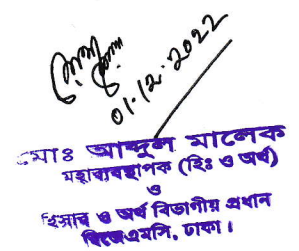 01.12.2022
মোঃ আব্দুল মালেক
মহাব্যবস্থাপক (হিঃ ও অর্থ)
ও
হিসাব ও অর্থ বিভাগীয় প্রধান
বিজেএমসি, ঢাকা।